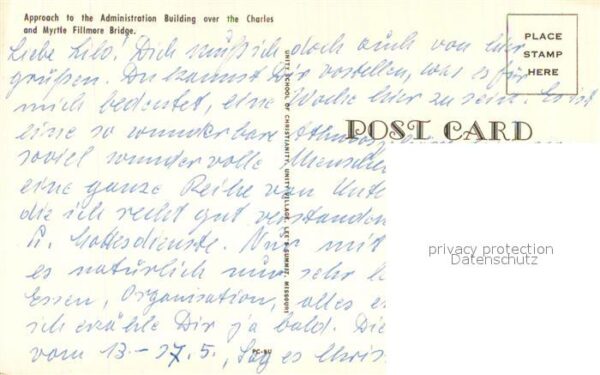 Approach to the Administration Building over the Charles
and Myrtle Fillmore Bridge.
PLACE
STAMP
HERE
POST CARD
UNITY SCHOOL OF CHRISTIANITY, UNITY VILLAGE, LEE'S SUMMIT, MISSOURI
PC-5U
Liebe Lilo! Dich muß ich doch auch von hier
grüßen. Du kannst Dir vorstellen, was es für
mich bedeutet, eine Woche hier zu sein. Es ist
eine so wunderbare Athmos
soviel wundervolle Mensche
eine ganze Reihe von Unte
die ich recht gut verstanden
Gottesdienste. Nur mit
es natürlich nur sehr
Essen, Organisation, alles
ich erzähle Dir ja bald. Die
vom 13.-27.5., Sag es Chris
privacy protection
Datenschutz